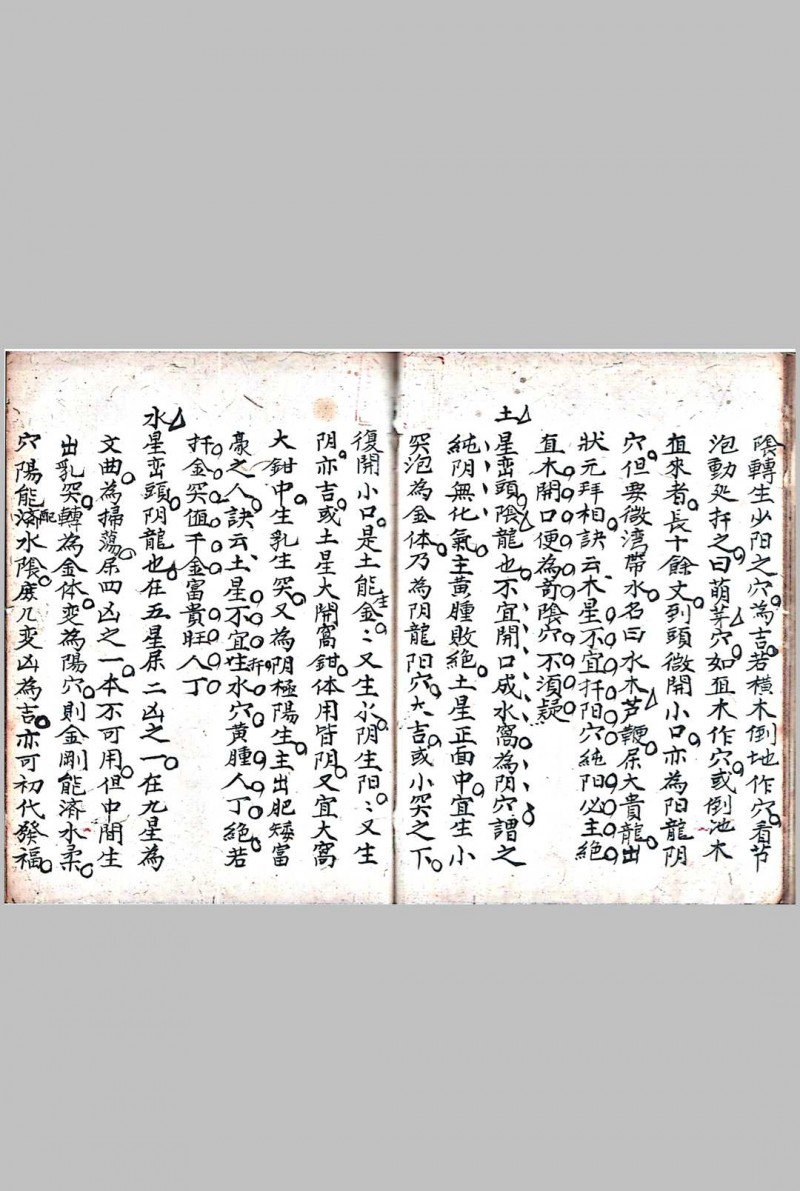 陰轉生少阳之穴為吉若横木倒地作穴看节
泡動处扦之曰萌芽穴如直木作穴或倒地木
直來者長十餘丈到頭微開小口亦為阳龍阴
穴但要微湾帶水名曰水木芦鞭屈大貴龍出
狀元拜相訣云木星不宜扦阳穴純阳必主絕
直木開口便為奇陰穴不須疑
土星巒頭陰龍也不宜開口成水窩為阴穴謂之
純阴無化氣主黄腫敗絕土星正面中宜生小
突泡為金体乃為阴龍阳穴大吉或小突之下
復開小口是土能生金〻又生水阴生阳〻又生
阴亦吉或土星大開窩鉗体用皆阴又宜大窩
大鉗中生乳生突又為阴極陽生主出肥矮富
豪之人訣云土星不宜扦水穴黄腫人丁絕若
扦金突值千金富貴旺人丁
水星巒頭阴龍也在五星屈二凶之一在九星為
文曲為掃蕩屈四凶之一本不可用但中間生
出乳突轉為金体变為陽穴則金剛能濟水柔
穴陽能配濟水陰度几变凶為吉亦可初代發福